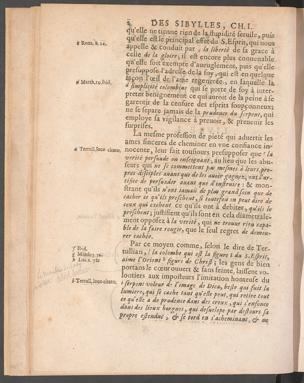 2 DES SIBYLLES, CH. I.
qu'elle ne tienne rien de la stupidité setule, puis
qu'elle est le principal effet du S. Esprit, qui nous
a Rom. 8. 21.
appelle & conduit par a la liberté de la grace à
celle de la gloire, il est encore plus convenable
qu'elle soit exempte d'aveuglement, puis qu'elle
presuppose l'adresse de la foy, qui est en quelque
façon l'œil de l'ame regenerée, en laquelle la
a simplicité colombine qui se porte de soy à inter-
preter benignement ce qui auroit de la peine à se
garentir de la censure des esprits soupçonneux
ne se separe jamais de la prudence du serpent, qui
employe sa vigilance à prevoir, & prevenir les
surprises.
La mesme profession de pieté qui advertit les
ames sinceres de cheminer en vne confiance in-
nocente, leur fait tousiours presupposer que la
verité persuade en enseignant, au lieu que les
pres disciples avant que de les avoir gagnez,
tifice de persuader avant que d'instruire: & mon-
strant qu'ils n'ont jamais de plus grand soin que de
cacher ce qu'ils preschent, si toutefois on peut dire de
ceux qui cachent ce qu'ils ont à debiter, qu'ils le
preschent; justifient qu'ils sont en cela diametrale-
ment opposez à la verité, qui ne trouve rien capa-
ble de la faire rougir, que le seul regret de demeu-
rer cachée.
Par ce moyen comme, selon le dire de Ter-
tullian, la colombe qui est la figure du S. Esprit,
aime l'Orient figure de Christ; les gens de bien
portans le cœur ouvert & sans feinte, laissent vo-
lontiers aux imposteurs l'imitation honteuse du
serpent voleur de l'image de Dieu, beste qui fuit la
lumiere, qui se cache tant qu'elle peut, qui retire tout
ce qu'elle a de prudence dans des creux, qui s'enfonce
dans des lieux borgnes, qui desuelope par destours sa
propre estendue, & se tord en s'acheminant, & ne